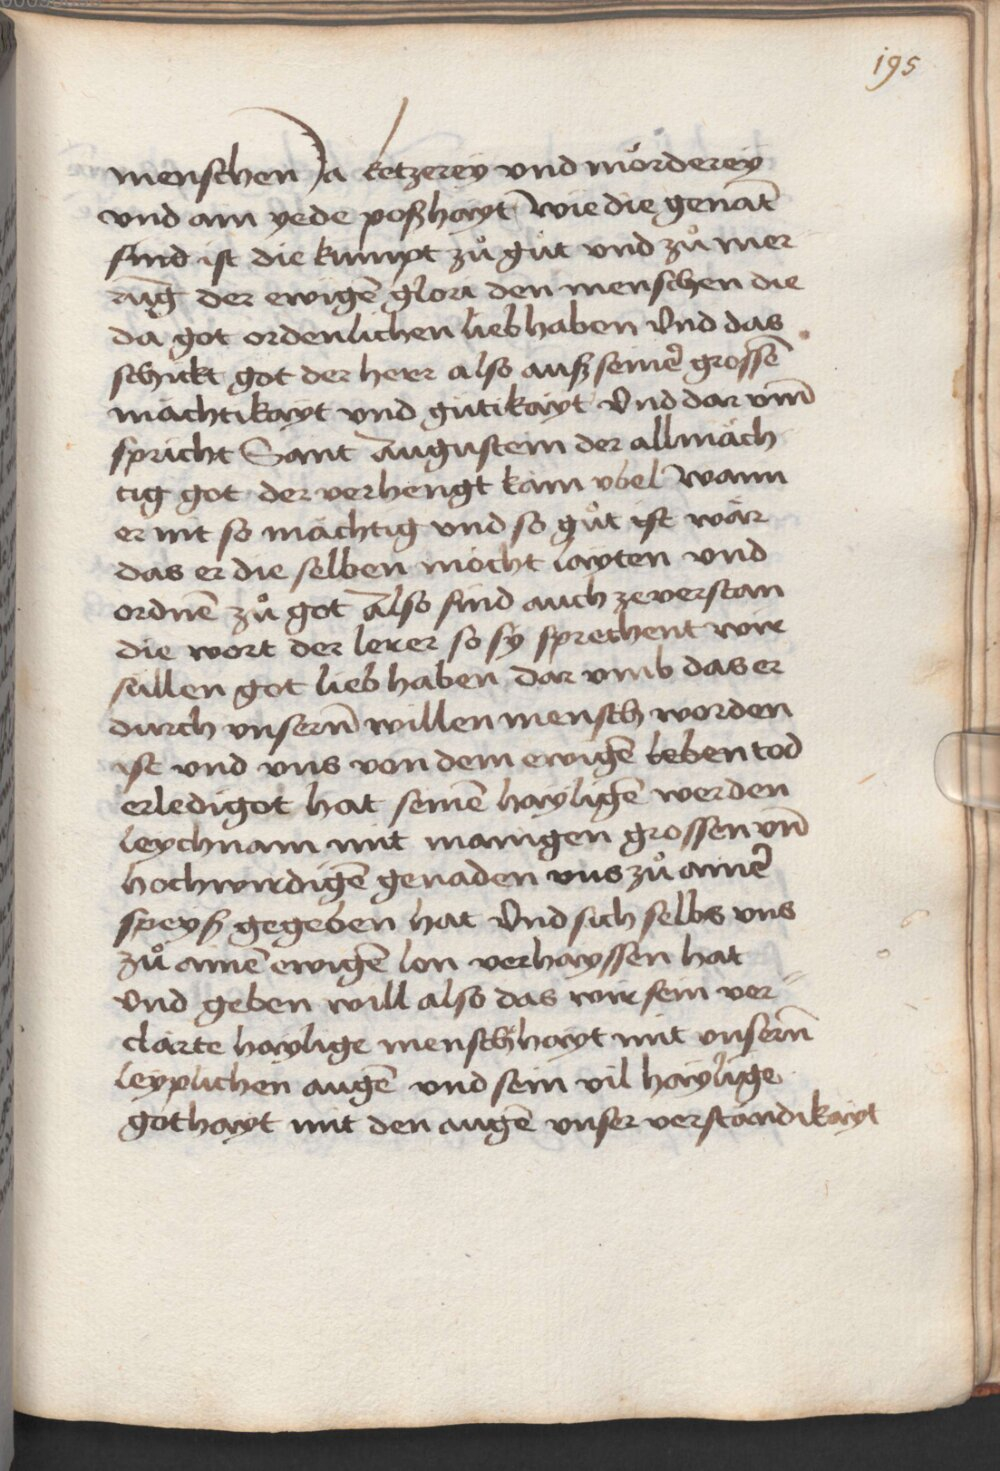 195
menschen Ja ketzereÿ vnd mörдereÿ
vnd ain yede poßhayt Wie die genāt
sind ist die kumpt zů gůt vnd zů mer
rūg der ewigē glori den menschen die
da got ordenlichen lieb haben Vnd das
schickt got der herr also auß seiner̄ grossē
mächtikayt vnd gütikayt Vnd dar vm̄
spricht Sant Augustein der allmäch
tig got der verhengt kain vbel Wann
er nit so mächtig vnd so gůt ist wär
das er die selben möcht layten vnd
ordnē zů got Also sind auch ze verstan
die wort der lerer so sy sprechent wir
süllen got lieb haben dar vmb das er
durch vnsern̄ willen mensch worden
ist vnd vns von dem ewigē leben tod
erledigot hat seinē hayligē werden
leychnam mit manigen grossen vn̄
hochwirdigē genaden vns zů ainer̄
speyß gegeben hat Vnd sich selbs vns
zů ainē ewigē lon verhayssen hat
Vnd geben will also das wir sein ver
clärte haylige menschhayt mit vnsern̄
leyplichen augē vnd sein vil haylige
gothayt mit den augē vnser verständikayt